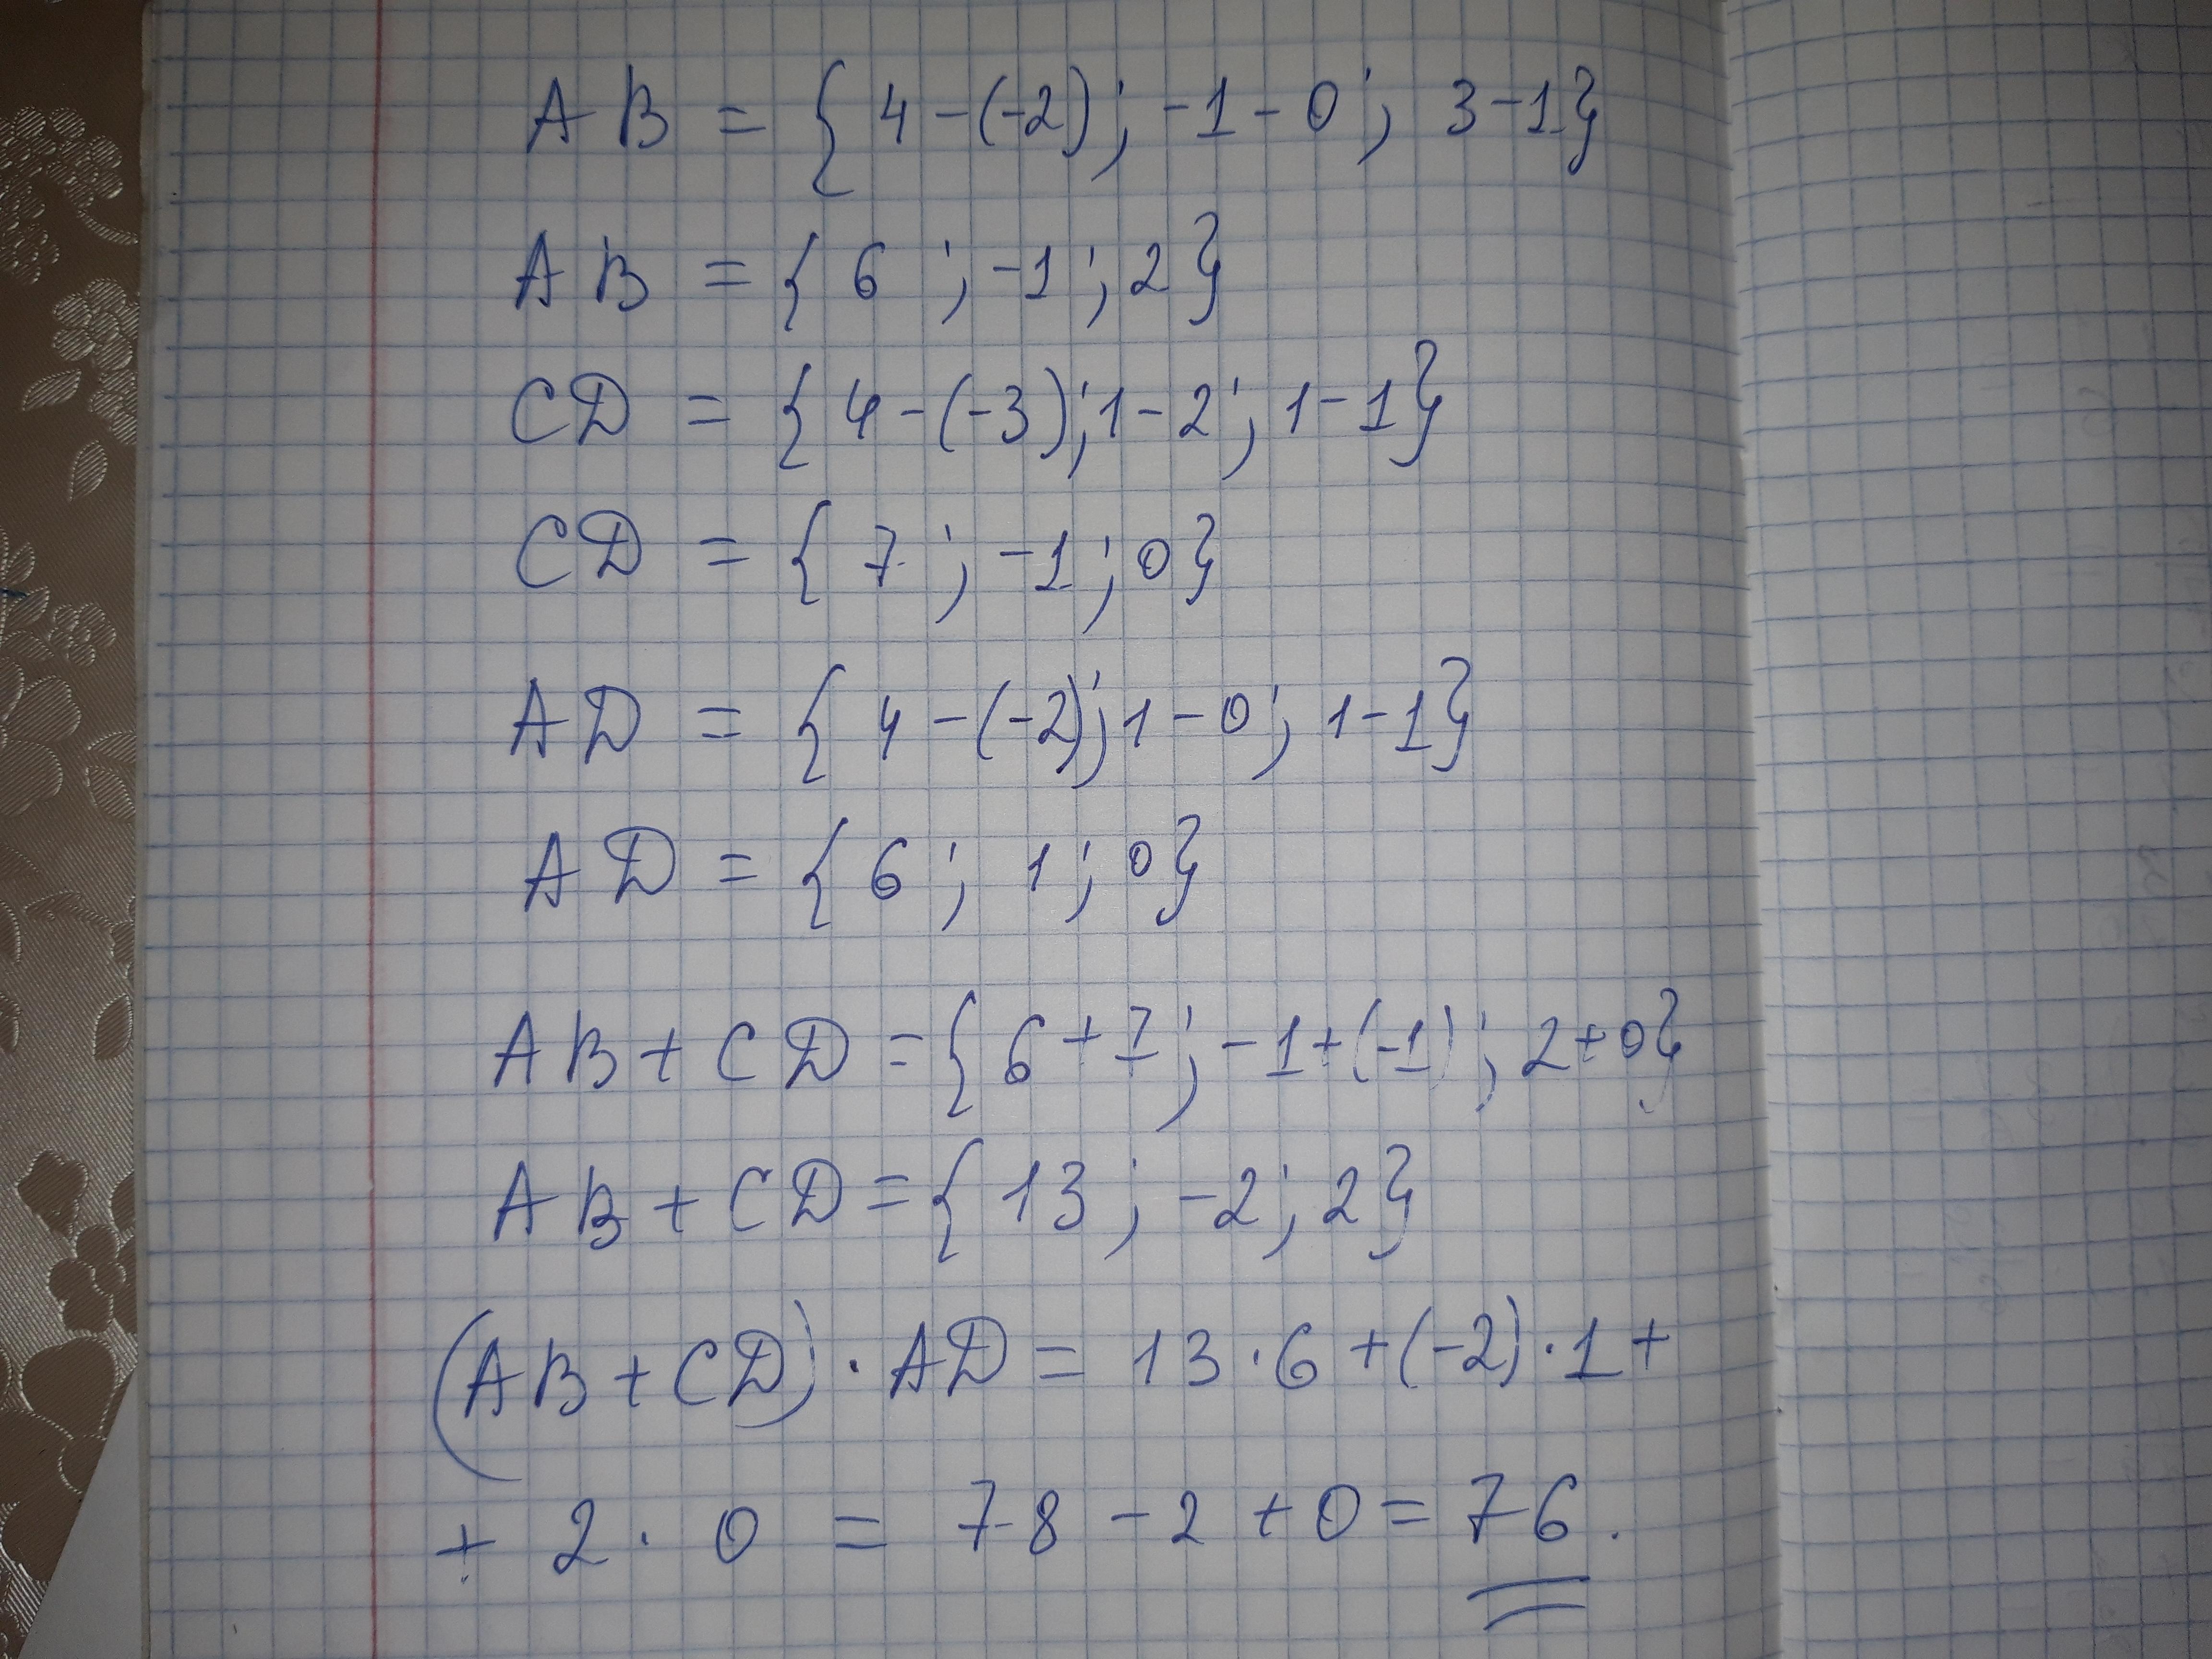 AB = {4-(-2); -1-0; 3-1}
AB = {6; -1; 2}
CD = {4-(-3); 1-2; 1-1}
CD = {7; -1; 0}
AD = {4-(-2); 1-0; 1-1}
AD = {6; 1; 0}
AB+CD = {6+7; -1+(-1); 2+0}
AB+CD = {13; -2; 2}
(AB+CD)·AD = 13·6+(-2)·1+
+ 2·0 = 78-2+0 = 76.